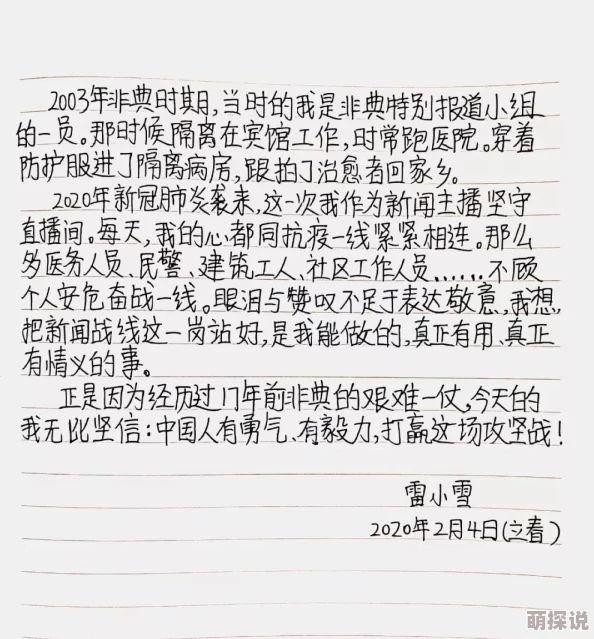 2003年非典时期,当时的我是非典特别报道小组
的一员。那时候隔离在宾馆工作,时常跑医院。穿着
防护服进了隔离病房,跟拍了治愈者回家乡。
2020年新冠肺炎袭来,这一次我作为新闻主播坚守
直播间。每天,我的心都同抗疫一线紧紧相连。那么
多医务人员、民警、建筑工人、社区工作人员……不顾
个人安危奋战一线。眼泪与赞叹不足于表达敬意,我想,
把新闻战线这一岗站好,是我能做的,真正有用、真正
有情义的事。
正是因为经历过17年前非典的艰难一仗,今天的
我无比坚信:中国人有勇气、有毅力,打赢这场攻坚战!
雷小雪
2020年2月4日(立春)
萌探说